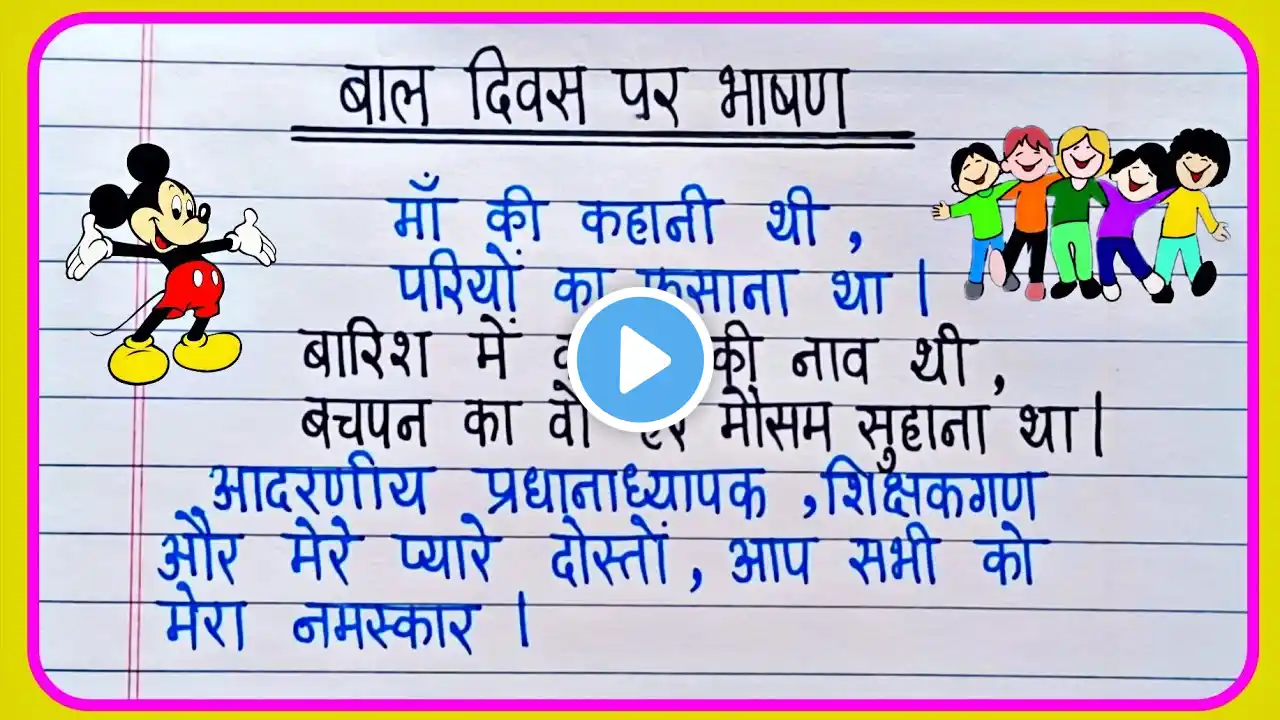 बाल दिवस पर भाषण
माँ की कहानी थी,
परियों का फसाना था।
बारिश में की नाव थी,
बचपन का वो हर मौसम सुहाना था।
आदरणीय प्रधानाध्यापक, शिक्षकगण
और मेरे प्यारे दोस्तों, आप सभी को
मेरा नमस्कार।